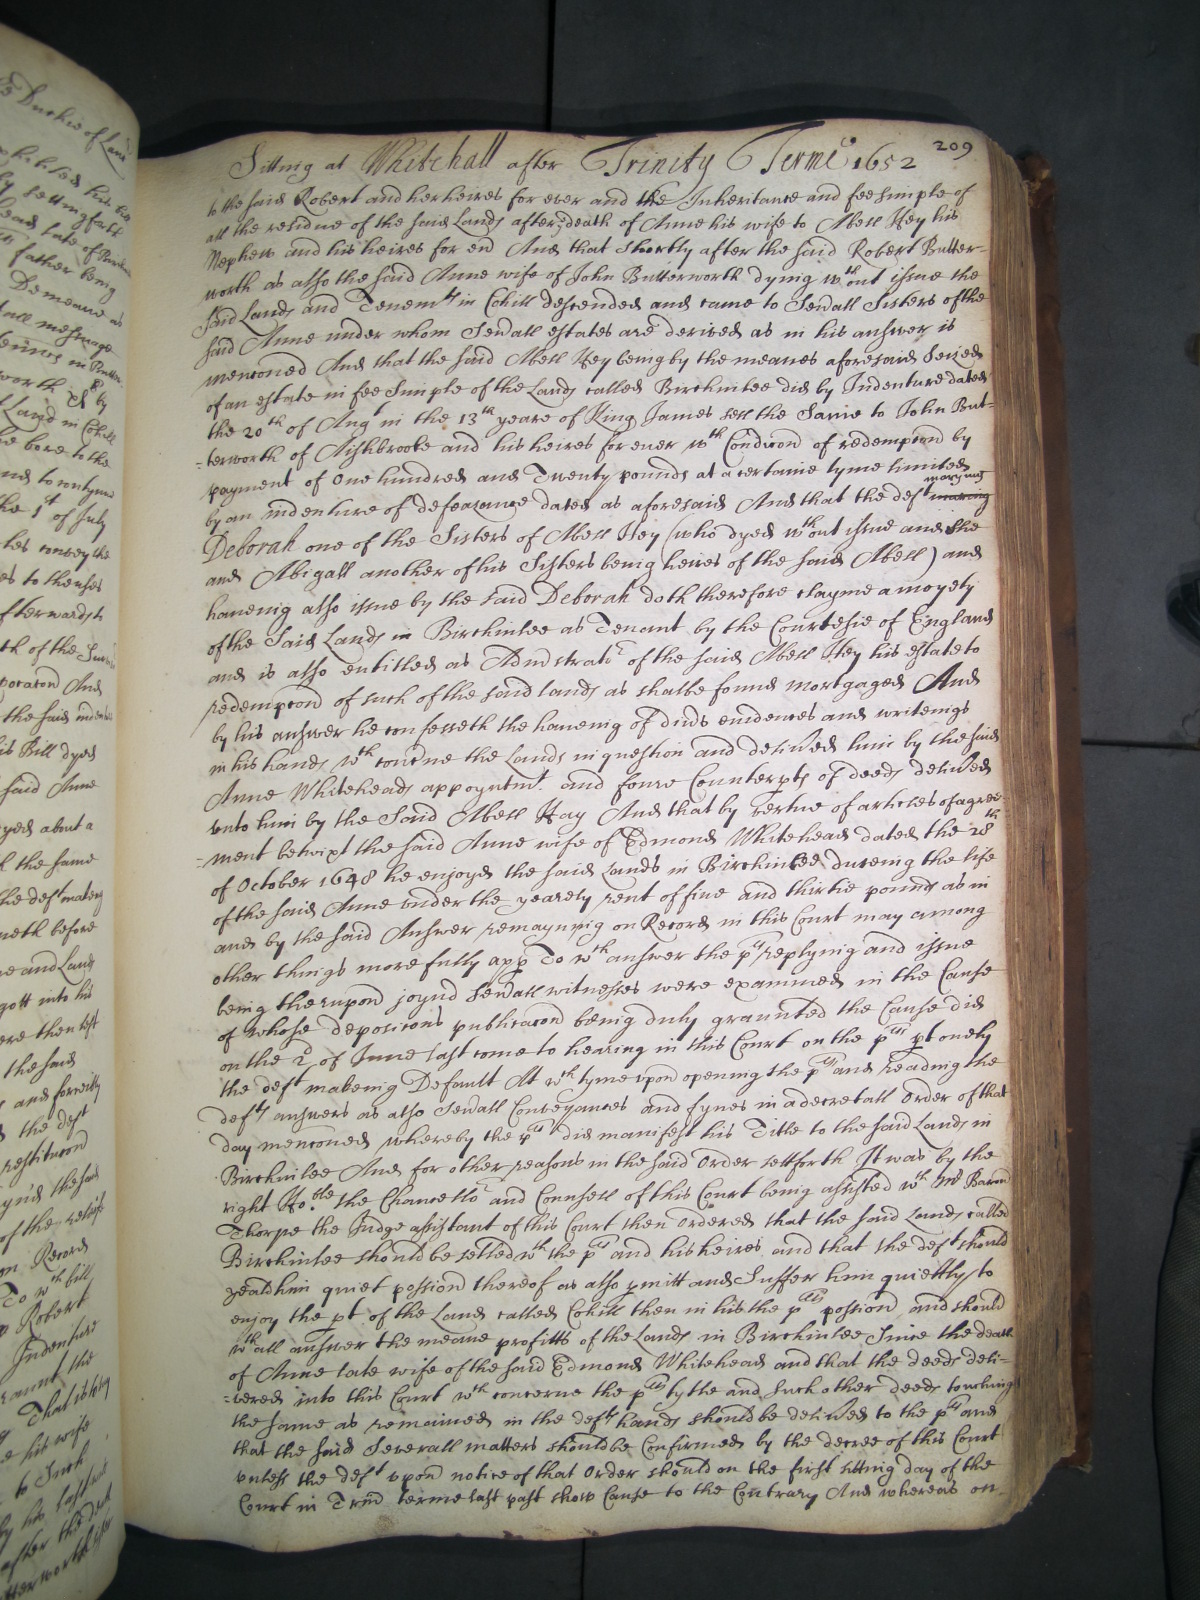 209
Sitting at Whitehall after Trinity Terme 1652
to the said Robert and her heires for ever and the Inheritance and fee simple of
all the residue of the said Lands after death of Anne his wife to Abell Hey his
Nephew and his heires for eu And that shortly after the said Robert Butter-
worth as also the said Anne wife of John Butterworth dying wthout issue the
said Lands and Tenemts in Cohill descended and came to Seuall Sisters of the
said Anne under whom Seuall estates are derived as in his answer is
mencioned And that the said Abell Hey being by the meanes aforesaid Seized
of an estate in fee Simple of the Lands called Birchinlee did by Indenture dated
the 20th of Augt in the 13th yeare of King James sell the Same to John But-
-terworth of Aishbrooke and his heires for euer wth Condicon of redempcon by
payment of One hundred and Twenty pounds at a certaine tyme limited
by an indenture of defeazance dated as aforesaid And that the deft marying
Deborah one of the Sisters of Abell Hey (who dyed wthout issue and she
and Abigall another of his Sisters being heires of the said Abell) and
haueing also issue by the said Deborah doth therefore clayme a moyety
of the Said Lands in Birchinlee as Tenant by the Courtesie of England
and is also entitled as Admstrator of the said Abell Hey his estate to
redempcon of such of the said lands as shalbe found mortgaged And
by his answer he confesseth the haueing of diuds euidences and writeings
in his hands wch concrne the Lands in question and deliued him by the said
Anne Whiteheads appoyntmt. and foure Counterpts of deeds deliued
vnto him by the Said Abell Hay And that by vertue of articles of agree-
-ment betwixt the said Anne wife of Edmond Whitehead dated the 28th
of October 1648 he enjoyed the said Lands in Birchinlee dureing the life
of the said Anne vnder the yearely rent of fiue and thirtie pounds as in
and by the said Answer remayning on Record in this Court may among
other things more fully app To wch answer the plt replying and issue
being therupon joynd Seuall witnesses were examined in the Cause
of whose deposicons publicacon being duly graunted the Cause did
on the 2d of June last come to hearing in this Court on the plts pt onely
the deft makeing Default At wch tyme vpon opening the plts and reading the
defts answers as also Seuall Conveyances and fynes in a decretall Order of that
day mencioned whereby the plt did manifest his Title to the said Lands in
Birchinlee And for other reasons in the said Order settforth It was by the
right Hoble the Chancellor and Counsell of this Court being assisted wth Mr Baron
Thorpe the Judge assistant of this Court then Ordered that the said Lands called
Birchinlee should be setled wth the plt and his heires and that the deft should
yeald him quiet possion thereof as also pmitt and Suffer him quiettly to
enjoy the pt of the Land called Cohill then in his the plts possion and should
wthall answer the meane profitts of the Lands in Birchinlee Since the death
of Anne late wife of the said Edmond Whitehead and that the deeds deli-
-vered into this Court wch concerne the plts tytle and such other deeds touching
the same as remained in the defts hands should be deliued to the plt and
that the said Severall matters should be Confirmed by the decree of this Court
vnless the deft vpon notice of that Order should on the first sitting day of the
Court in Trin terme last past show Cause to the Contrary And whereas on